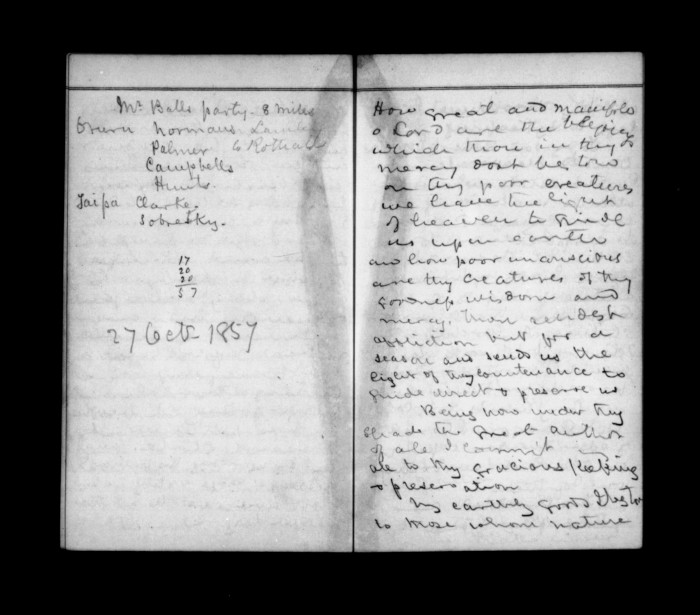 Mr Balls party. 8 miles
Oruru Normans
Palmer
Campbells
Hunts
Taipa Clarke.
Sobresky.
17
20
20
57
27 Octr 1857
How great and manifold
o Lord are the blessings
which thou in thy
mercy dost bestow
on thy poor creatures
we have the light
of heaven to guide
us upon earth
and how poor unconscious
are thy creatures of thy
goodness wisdom and
mercy. Thou sendest
affliction but for a
season and sends us the
light of thy countenance to
guide direct & preserve us
Being now under thy
shade the great author
of all I commit my
all to thy gracious keeping
& preservation
My earthly goods
to those whom nature